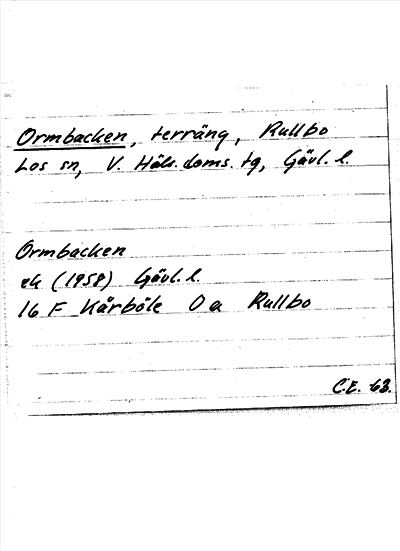 Ormbacken, terräng, Rullbo
Los sn, V. Häls. doms. tg, Gävl. l.
Ormbacken
ek (1958) Gävl. l.
16 F Kårböle 0 a Rullbo
C.E. 63.